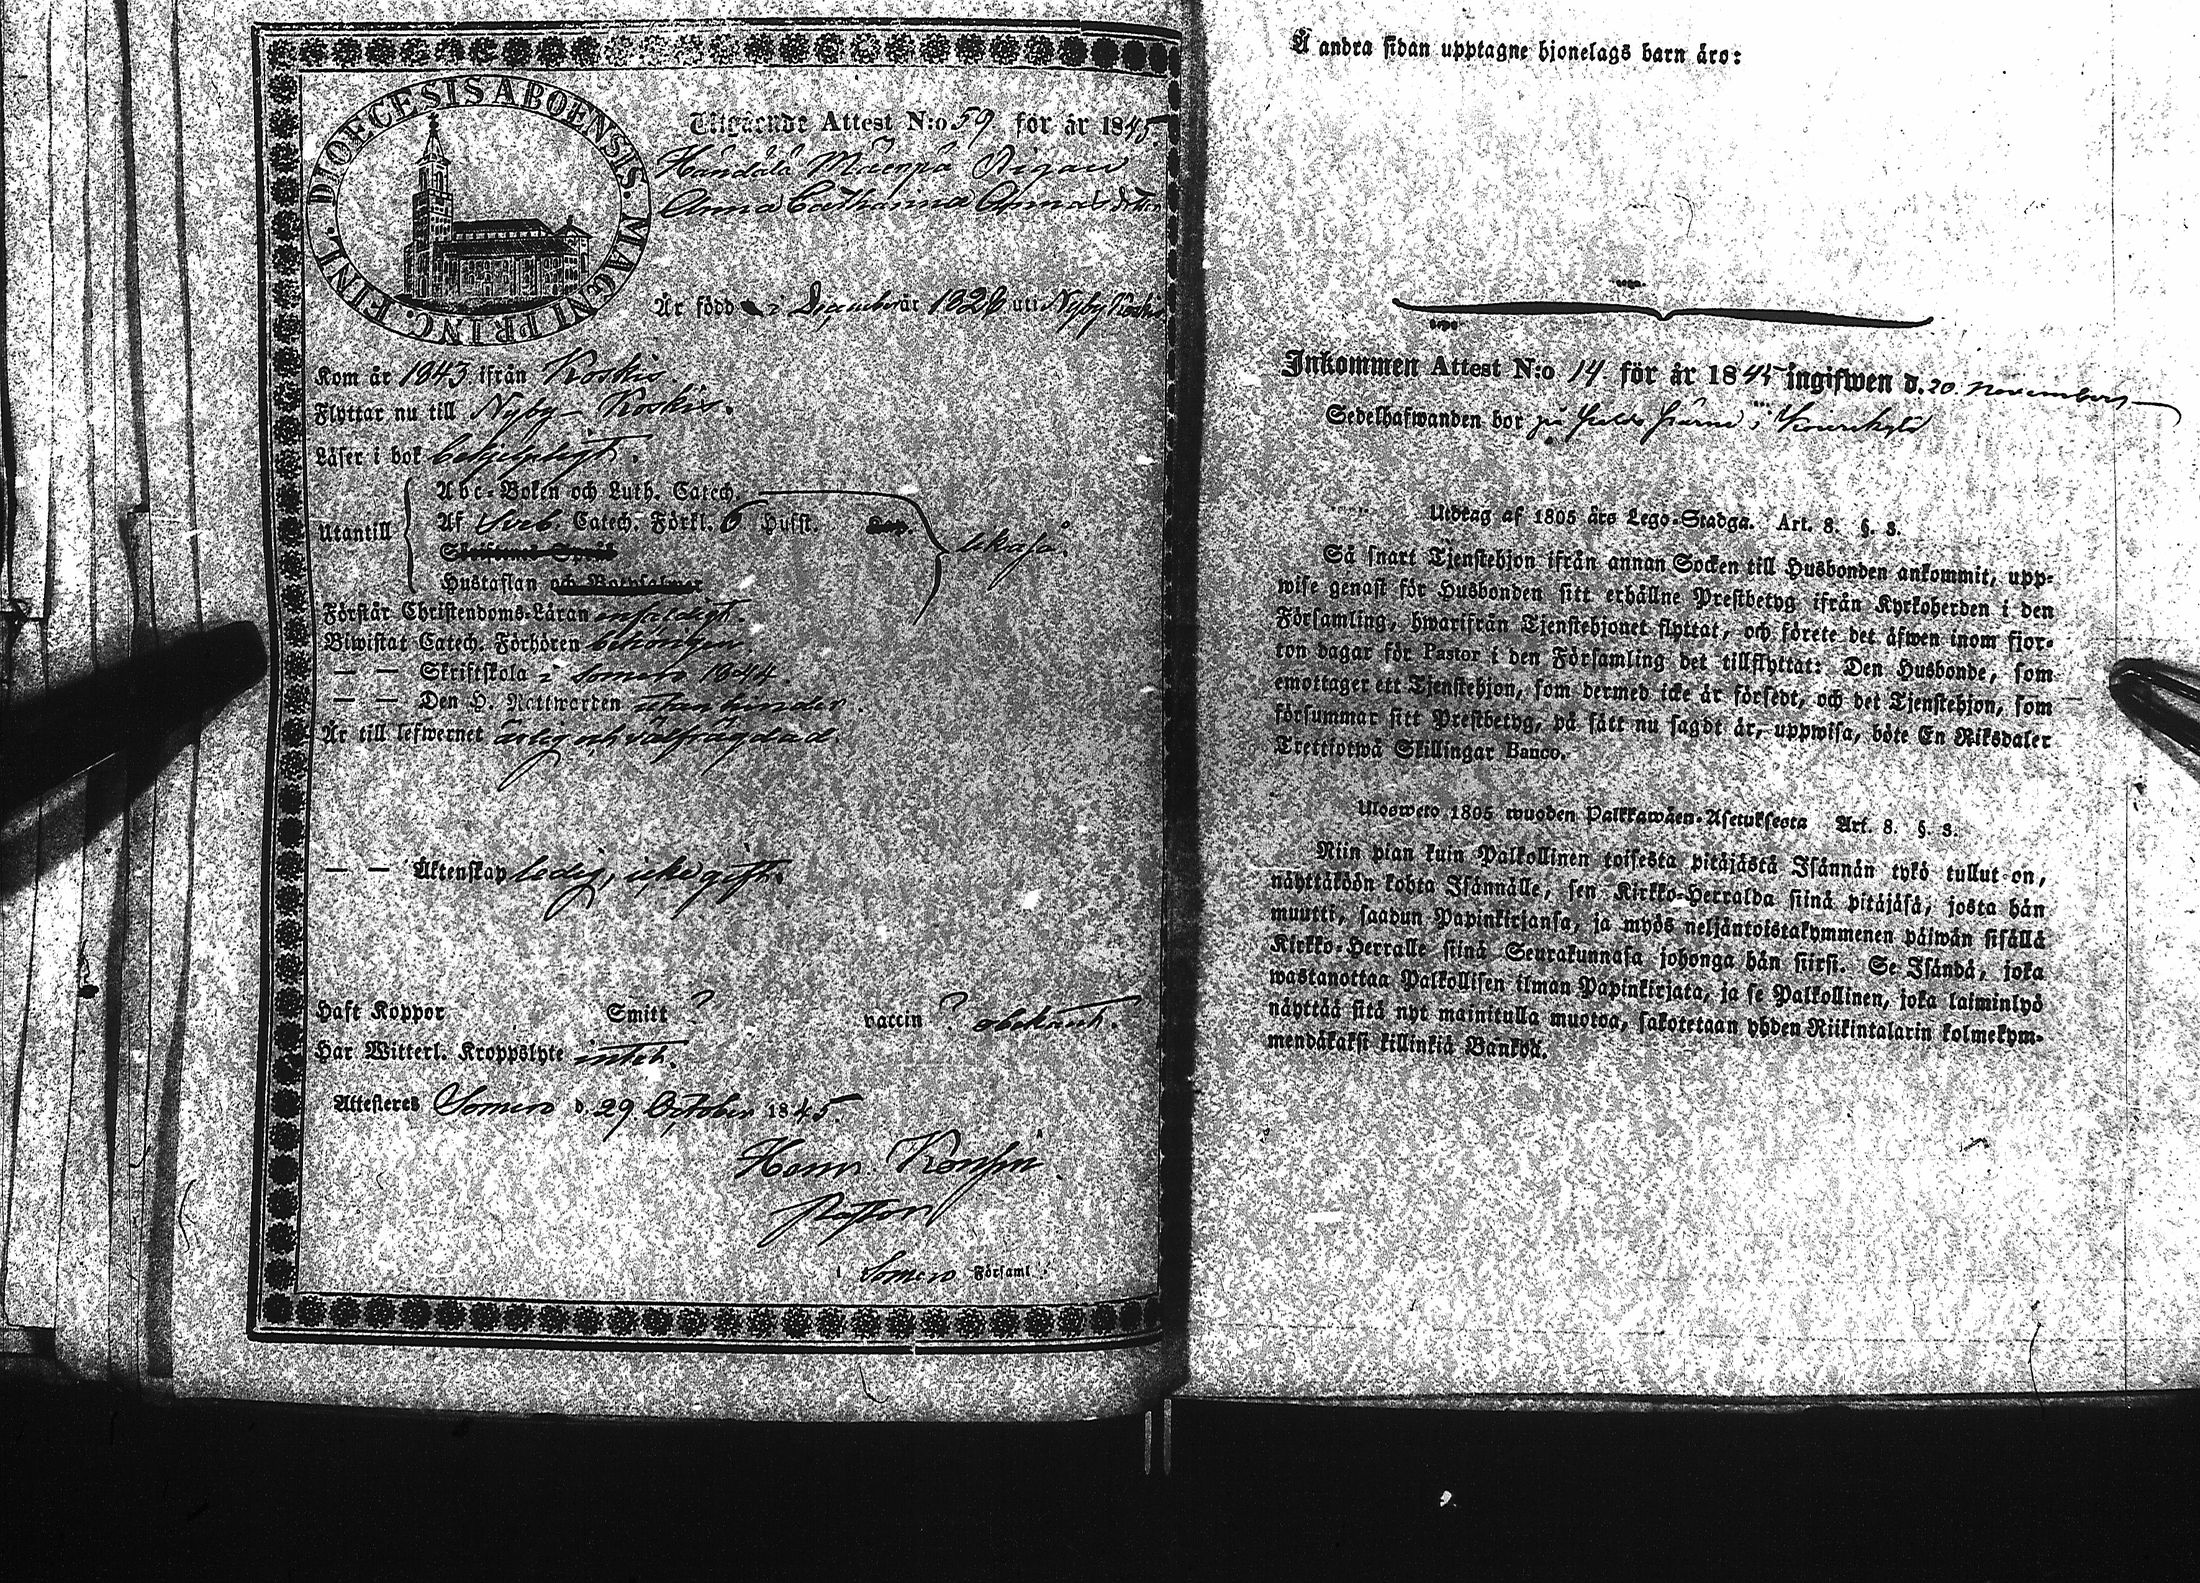 DIOECESIS ABOENSIS. MAGNI PRINC. FINL.
Utgående Attest N:o 59 för år 1845.
Händälä Mäenpä Pigan
Anna Catharina
Är född December år 1826 uti Nyby Koskis
Kom år 1843 ifrån Koskis
Flyttar nu till Nyby - Koskis.
Läser i bok behjelpligt.
Utantill
Abc-Boken och Luth. Catech.
Af Sveb. Catech. Förkl. 6 Hufst.
likaså.
Hustaflan och Botpsalmer
Förstår Christendoms-Läran enfaldigt.
Biwistat Catech. Förhören behörigen.
— — Skriftskola i Somero 1844.
— — Den H. Nattwarden utan hinder.
Är till lefwernet ärlig och välfrägdad.
— — Äktenskap ledig, icke gift.
Haft Koppor Smitt ? vaccin ? obekant.
Har Witterl. Kroppslyte intet.
Attesteres Somero d. 29 October 1845.
Pastor
i Somero Församl.
Å andra sidan upptagne hjonelags barn äro:
Inkommen Attest N:o 14 för år 1845 ingifwen d. 20. Novembers
Sedelhafwanden bor på i
Utdrag af 1805 års Lego-Stadga. Art. 8. §. 3.
Så snart Tjenstehjon ifrån annan Socken till Husbonden ankommit, upp-
wise genast för Husbonden sitt erhållne Prestbetyg ifrån Kyrkoherden i den
Församling, hwarifrån Tjenstehjonet flyttat, och förete det äfwen inom fjor-
ton dagar för Pastor i den Församling det tillflyttat: Den Husbonde, som
emottager ett Tjenstehjon, som dermed icke är försedt, och det Tjenstehjon, som
försummar sitt Prestbetyg, på sätt nu sagdt är, uppwisa, böte En Riksdaler
Trettiotwå Skillingar Banco.
Ulosweto 1805 wuoden Palkkawäen-Asetuksesta Art. 8. §. 3.
Niin pian kuin Palkollinen toisesta pitäjästä Isännän tykö tullut on,
näyttäköön kohta Isännälle, sen Kirkko-Herralda siinä pitäjäsä, josta hän
muutti, saadun Papinkirjansa, ja myös neljäntoistakymmenen päiwän sisällä
Kirkko-Herralle siinä Seurakunnasa johonga hän siirsi. Se Isändä, joka
wastanottaa Palkollisen ilman Papinkirjata, ja se Palkollinen, joka laiminlyö
näyttää sitä nyt mainitulla muotoa, sakotetaan yhden Riikintalarin kolmekym-
mendäkaksi killinkiä Bankoa.